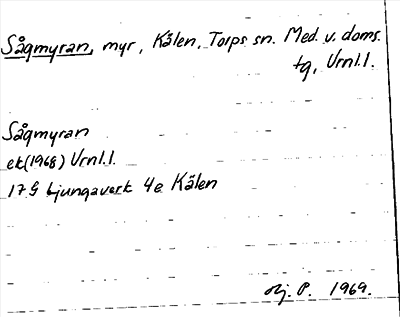 Sågmyran, myr, Kälen, Torps sn. Med. v. doms.
tg, Vrnl.l.
Sågmyran
ek(1968) Vrnl.l.
17 G Ljungaverk 4e Kälen
obj. P. 1969.